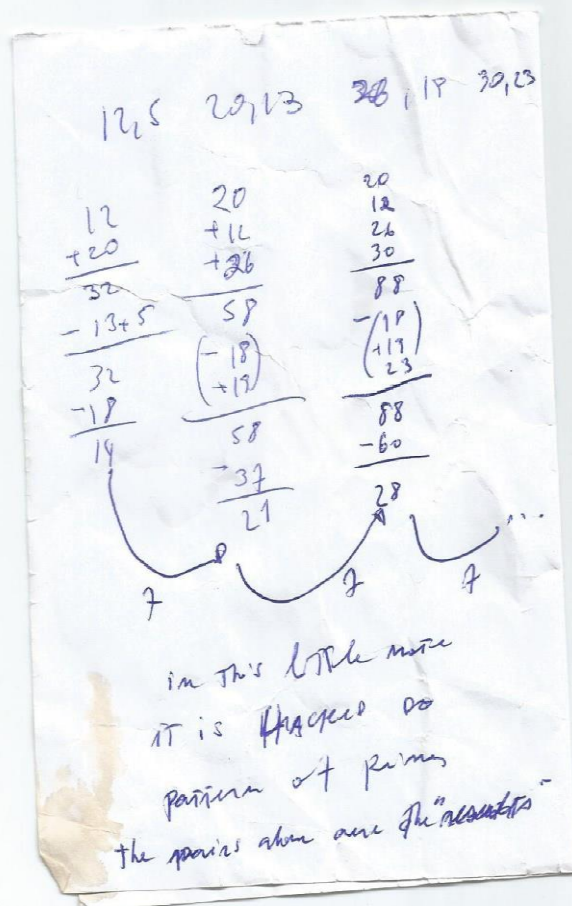 12,5 20,13 26,19 30,23
12
+20
32
-13+5
32
-18
14
20
+12
+26
58
(-18
+19)
58
-37
21
20
12
26
30
88
-(18
+19
23)
88
-60
28
7 7 7 ...
in this little note
it is HACKED DO
pattern of primes
the pairs above are the "results"